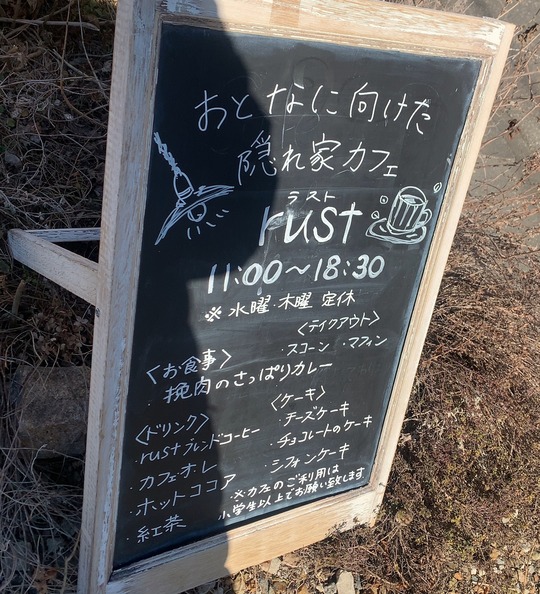 おとなに向けた
隠れ家カフェ
ラスト
rust
11:00〜18:30
※水曜・木曜 定休
〈テイクアウト〉
・スコーン ・マフィン
〈お食事〉
・挽肉のさっぱりカレー
〈ドリンク〉
・rustブレンドコーヒー
・カフェ・オ・レ
・ホットココア
・紅茶
〈ケーキ〉
・チーズケーキ
・チョコレートのケーキ
・シフォンケーキ
※カフェのご利用は
小学生以上でお願い致します